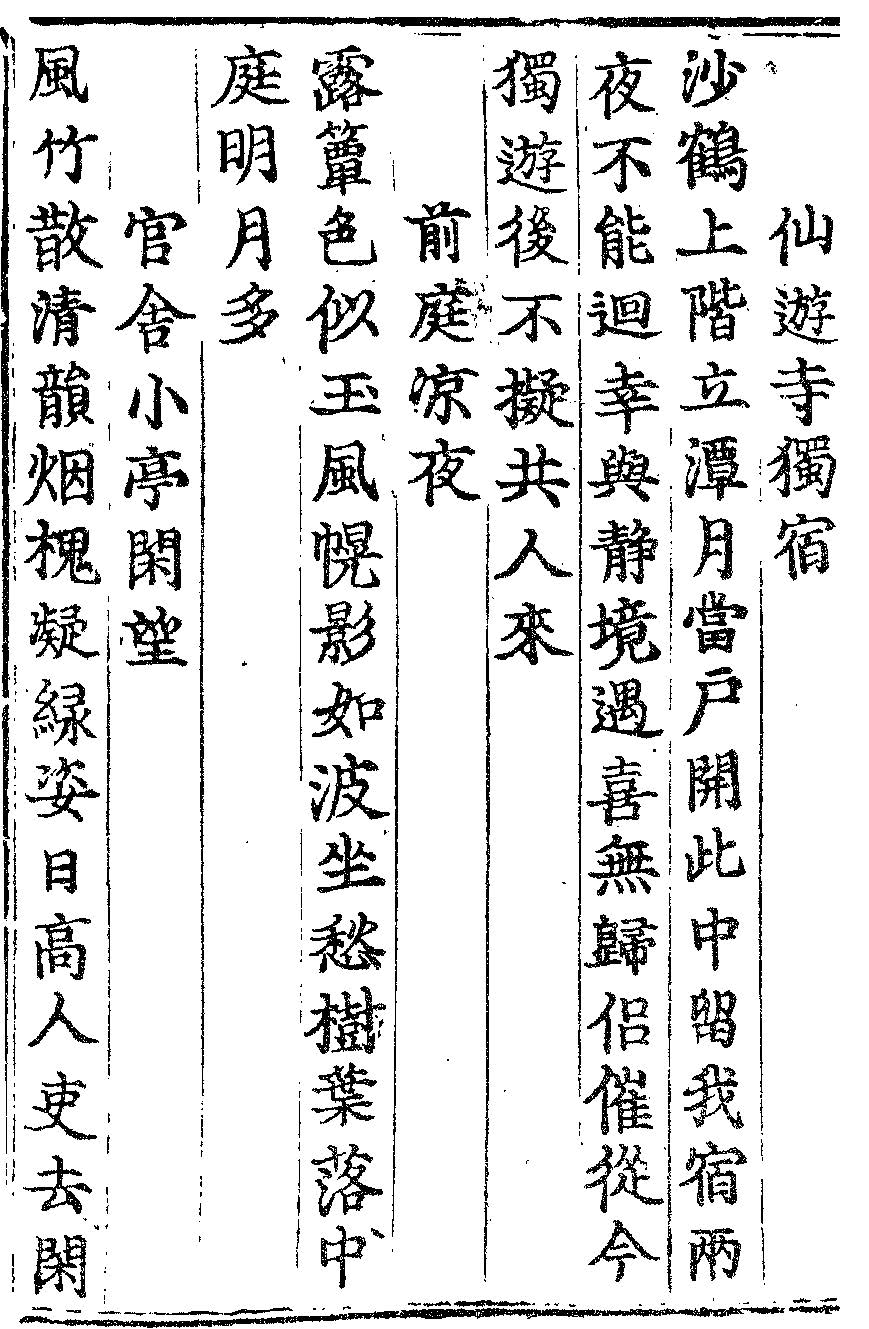 仙遊寺獨宿
沙鶴上階立潭月當戸開此中留我宿兩
夜不能迴幸與静境遇喜無歸侣催從今
獨遊後不擬共人來
前庭凉夜
露簟色似玉風幌影如波坐愁樹葉落中
庭明月多
官舍小亭閑望
風竹散清韻烟槐凝緑姿日高人吏去閑